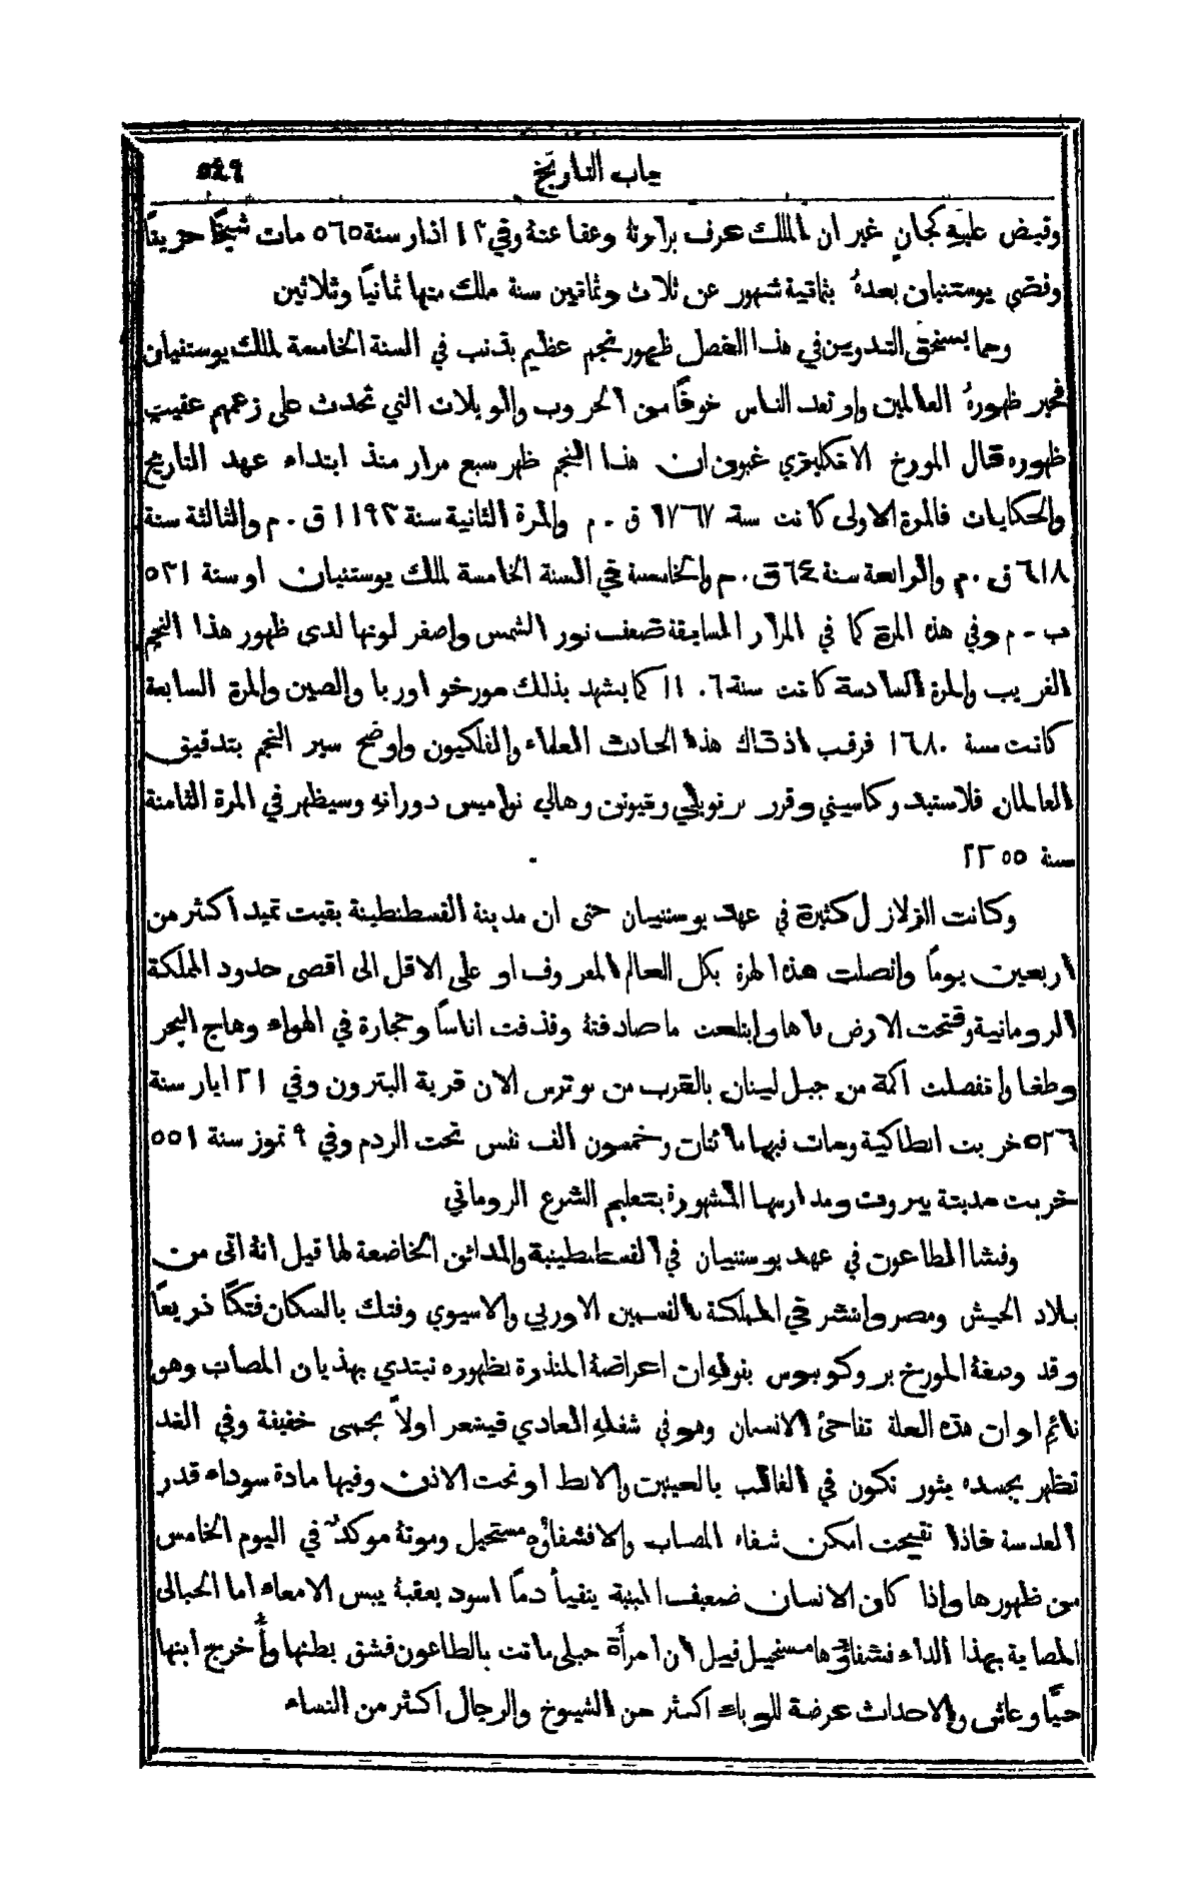 باب التاريخ ٥٤٩
وقبض عليهِ كجانٍ غير ان الملك عرف براءتهُ وعفا عنهُ وفي ١٢ اذار سنة ٥٦٥ مات شيخًا حزينًا
وقضى يوستنيان بعدهُ بثمانية شهور عن ثلاث وثمانين سنة ملك منها ثمانيًا وثلاثين
ومما يستحق التدوين في هذا الفصل ظهور نجم عظيم بذنب في السنة الخامسة لملك يوستنيان
فحير ظهورهُ العالمين وارتعد الناس خوفًا من الحروب والويلات التي تحدث على زعمهم عقيب
ظهوره قال المورخ الانكليزي غبون ان هذا النجم ظهر سبع مرار منذ ابتداء عهد التاريخ
والحكايات فالمرة الاولى كانت سنة ١٧٦٧ ق . م والمرة الثانية سنة ١١٩٣ ق . م والثالثة سنة
٦١٨ ق . م والرابعة سنة ٤٤ ق . م والخامسة في السنة الخامسة لملك يوستنيان او سنة ٥٣١
ب . م وفي هذه المرة كما في المرار السابقة ضعف نور الشمس واصفر لونها لدى ظهور هذا النجم
الغريب والمرة السادسة كانت سنة ١١٠٦ كما يشهد بذلك مورخو اوربا والصين والمرة السابعة
كانت سنة ١٦٨٠ فرقب اذ ذاك هذا الحادث العلماء والفلكيون واوضح سير النجم بتدقيق
العالمان فلاستيد وكاسيني وقرر برنويلي ونيوتن وهالي نواميس دورانهِ وسيظهر في المرة الثامنة
سنة ٢٣٥٥
وكانت الزلازل كثيرة في عهد يوستنيان حتى ان مدينة القسطنطينة بقيت تميد اكثر من
اربعين يومًا واتصلت هذه الهزة بكل العالم المعروف او على الاقل الى اقصى حدود المملكة
الرومانية وفتحت الارض فاها وابتلعت ما صادفتهُ وقذفت اناسًا وحجارة في الهواء وهاج البحر
وطغا وانفصلت اكمة من جبل لبنان بالقرب من بوترس الان قرية البترون وفي ٢١ ايار سنة
٥٢٦ خربت انطاكية ومات فيها مائتان وخمسون الف نفس تحت الردم وفي ٩ تموز سنة ٥٥١
خربت مدينة بيروت ومدارسها المشهورة بتعليم الشرع الروماني
وفشا الطاعون في عهد يوستنيان في القسطنطينية والمدائن الخاضعة لها قيل انهُ اتى من
بلاد الحبش ومصر وانتشر في المملكة بالقسمين الاوربي والاسيوي وفتك بالسكان فتكًا ذريعًا
وقد وصفهُ المورخ بروكوبوس بقولهِ ان اعراضهُ المنذرة بظهوره تبتدي بهذيان المصاب وهو
نائم او ان هذه العلة تفاجئُ الانسان وهو في شغلهِ العادي فيشعر اولاً بحمى خفيفة وفي الغد
تظهر بجسده بثور تكون في الغالب بالعينين والابط او تحت الاذن وفيها مادة سوداء قدر
العدسة فاذا تقيحت امكن شفاء المصاب والا فشفاؤُه مستحيل وموتهُ موكدٌ في اليوم الخامس
من ظهورها واذا كان الانسان ضعيف البنية يتقيأ دمًا اسود يعقبهُ يبس الامعاء اما الحبالى
المصابة بهذا الداء فشفاؤُها مستحيل قيل ان امرأة حبلى ماتت بالطاعون فشق بطنها وأُخرج ابنها
حيًّا وعاش والاحداث عرضة للوباء اكثر من الشيوخ والرجال اكثر من النساء